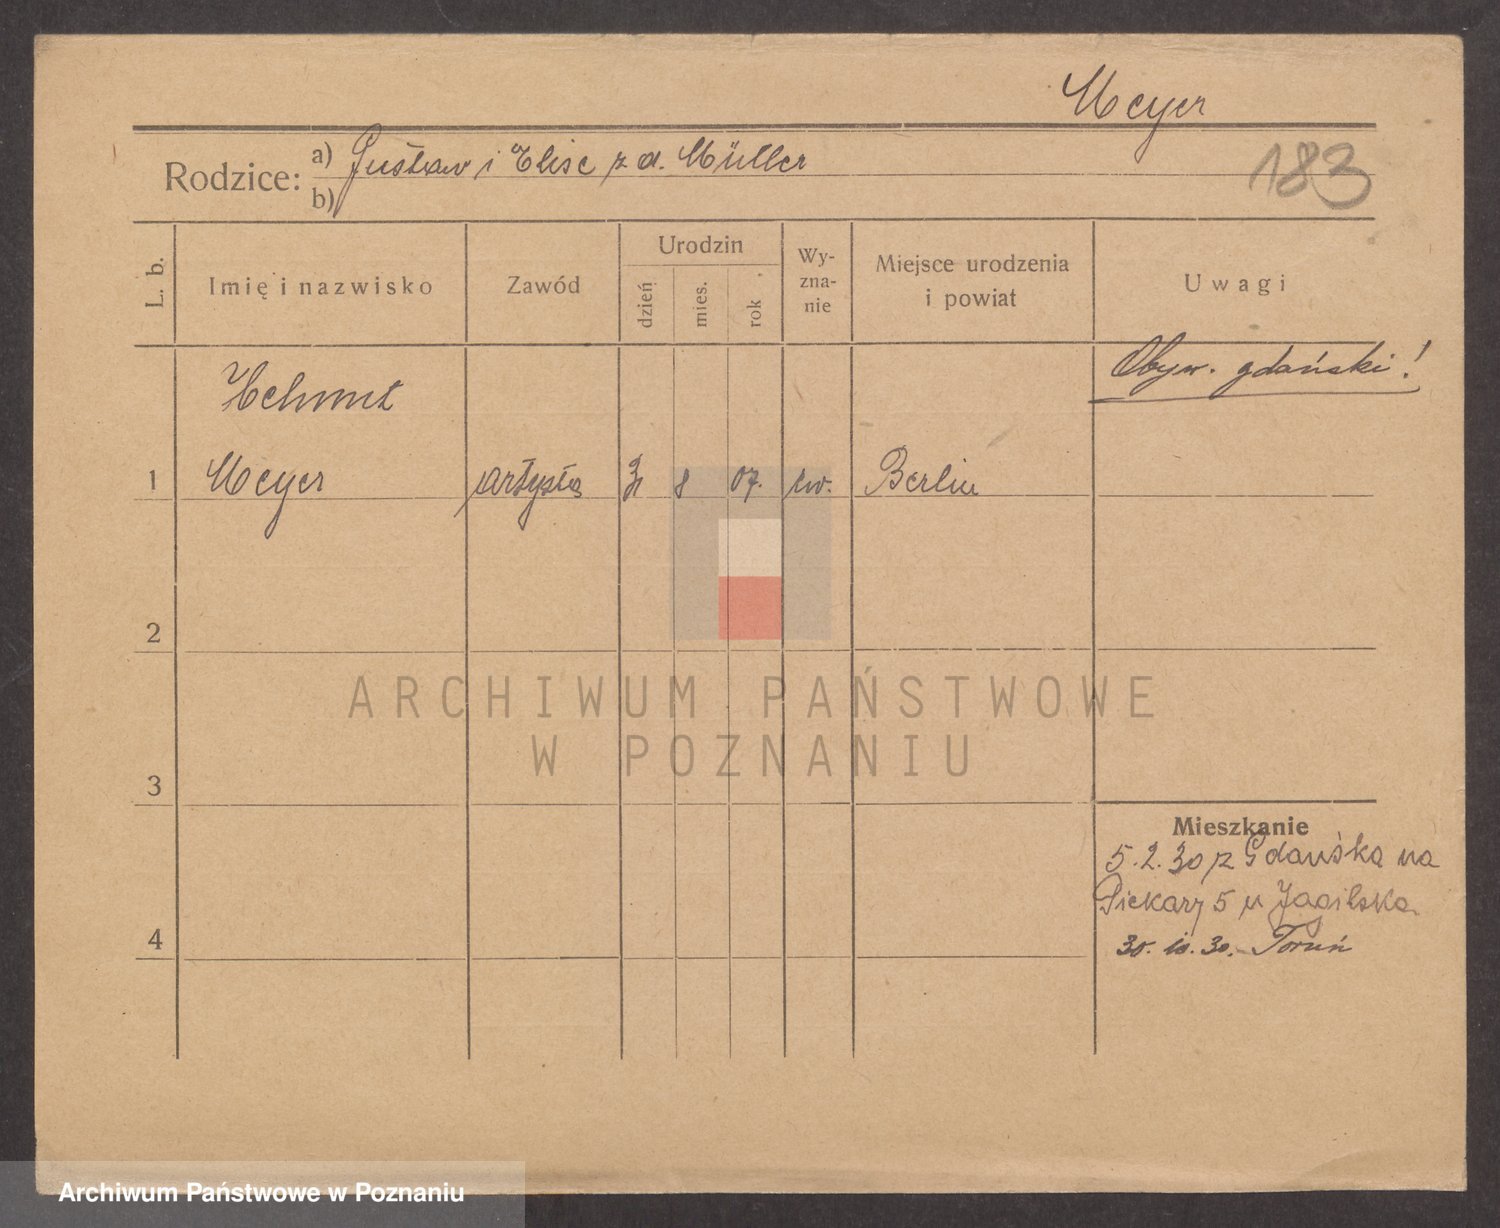 Meyer
183
Rodzice:
a) Gustaw i Elise z d. Müller
b)
L. b.
Imię i nazwisko
Zawód
Urodzin
dzień
mies.
rok
Wy-
zna-
nie
Miejsce urodzenia
i powiat
Uwagi
Obyw. gdański!
Helmut
1 Meyer artysta 8 07. ew. Berlin
2
3
4
Mieszkanie
5.2.30 z Gdańska na
Piekary 5 u
30. 10. 30. - Toruń
ARCHIWUM PAŃSTWOWE
W POZNANIU
Archiwum Państwowe w Poznaniu